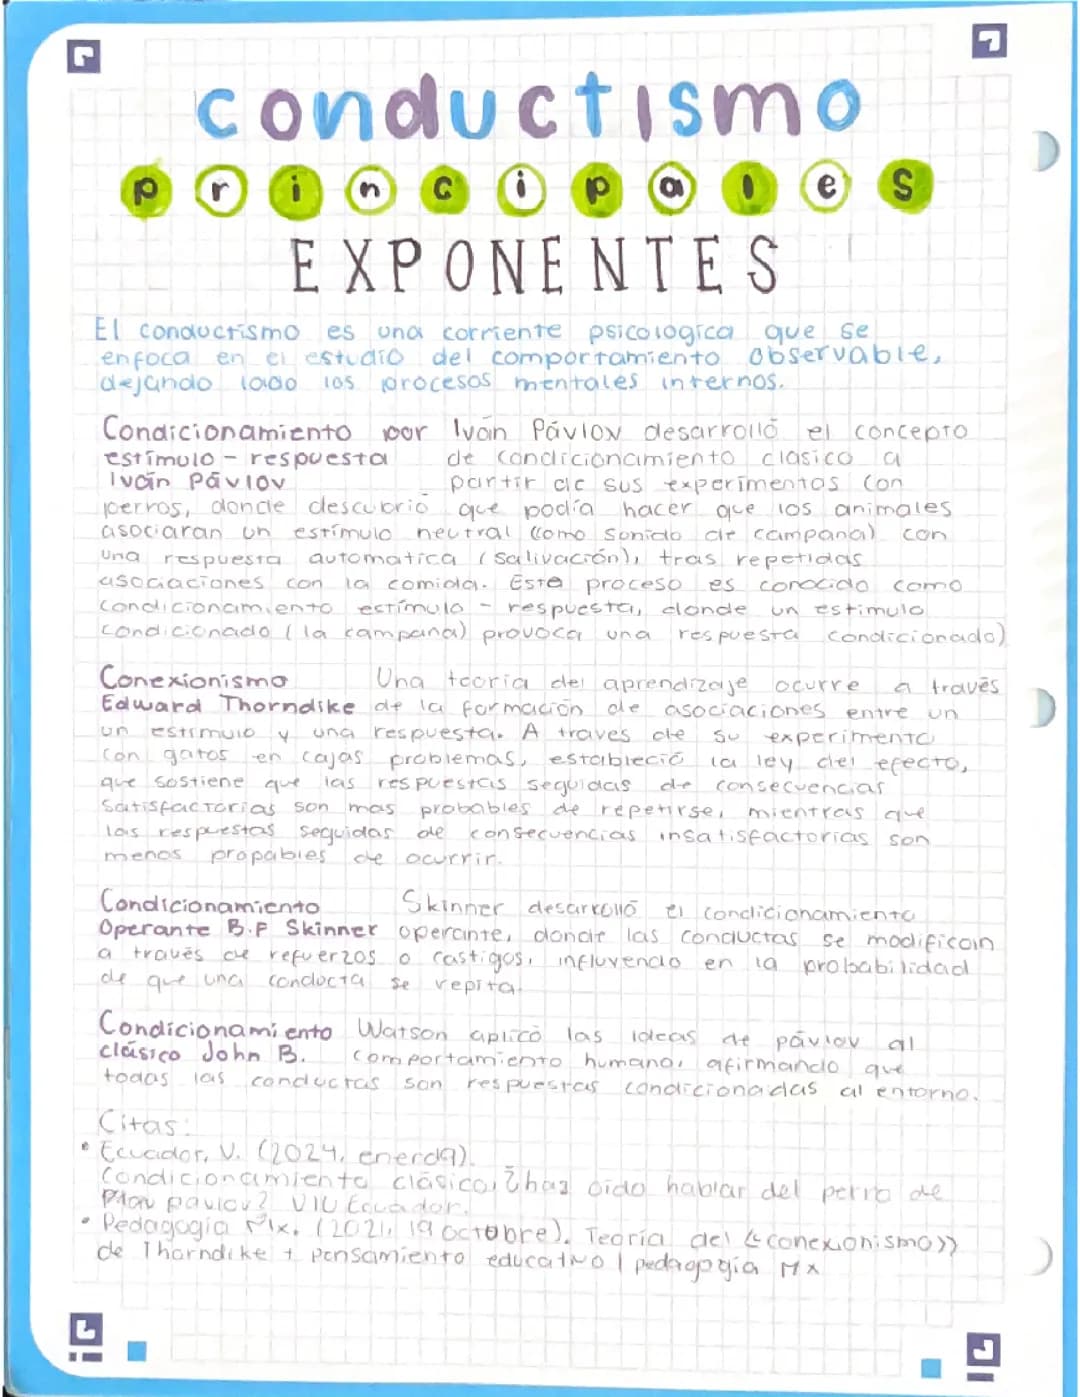 conductismo
principales
EXPONENTES
El conductismo es una corriente psicologica que se
enfoca en el estudio del comportamiento observable,
dejando lado los procesos mentales internos.
Condicionamiento por Iván Pávlov desarrolló el concepto
estímulo - respuesta de condicionamiento clasico a
Iván Pávlov partir de sus experimentos con
perros, donde descubrió que podía hacer que los animales
asociaran un estímulo neutral (como sonido de campana) con
una respuesta automatica (salivación), tras repetidas
asociaciones con la comida. Este proceso es conocido como
condicionamiento estímulo - respuesta, donde un estimulo
condicionado (la campana) provoca una respuesta condicionado)
Conexionismo Una teoria del aprendizaje ocurre a través
Edward Thorndike de la formación de asociaciones entre un
un estímulo y una respuesta. A traves de su experimento
con gatos en cajas problemas, estableció la ley del efecto,
que sostiene que las respuestas seguidas de consecuencias
satisfactorias son mas probables de repetirse, mientras que
las respuestas seguidas de consecuencias insatisfactorias son
menos propables de ocurrir.
Condicionamiento Skinner desarrolló el condicionamiento
Operante B.F Skinner operante, donde las conductas se modifican
a través de refuerzos o castigos, influyendo en la probabilidad
de que una conducta se repita.
Condicionamiento Watson aplicó las ideas de pávlov al
clásico John B. comportamiento humano, afirmando que
todas las conductas son respuestas condicionadas al entorno.
Citas:
• Ecuador, V. (2024, enero 9).
Condicionamiento clásico, ¿has oído hablar del perro de
pavlov? VIU Ecuador.
• Pedagogia Mx. (2021, 19 octobre). Teoría del «conexionismo»
de Thorndike + pensamiento educativo | pedagogía Mx